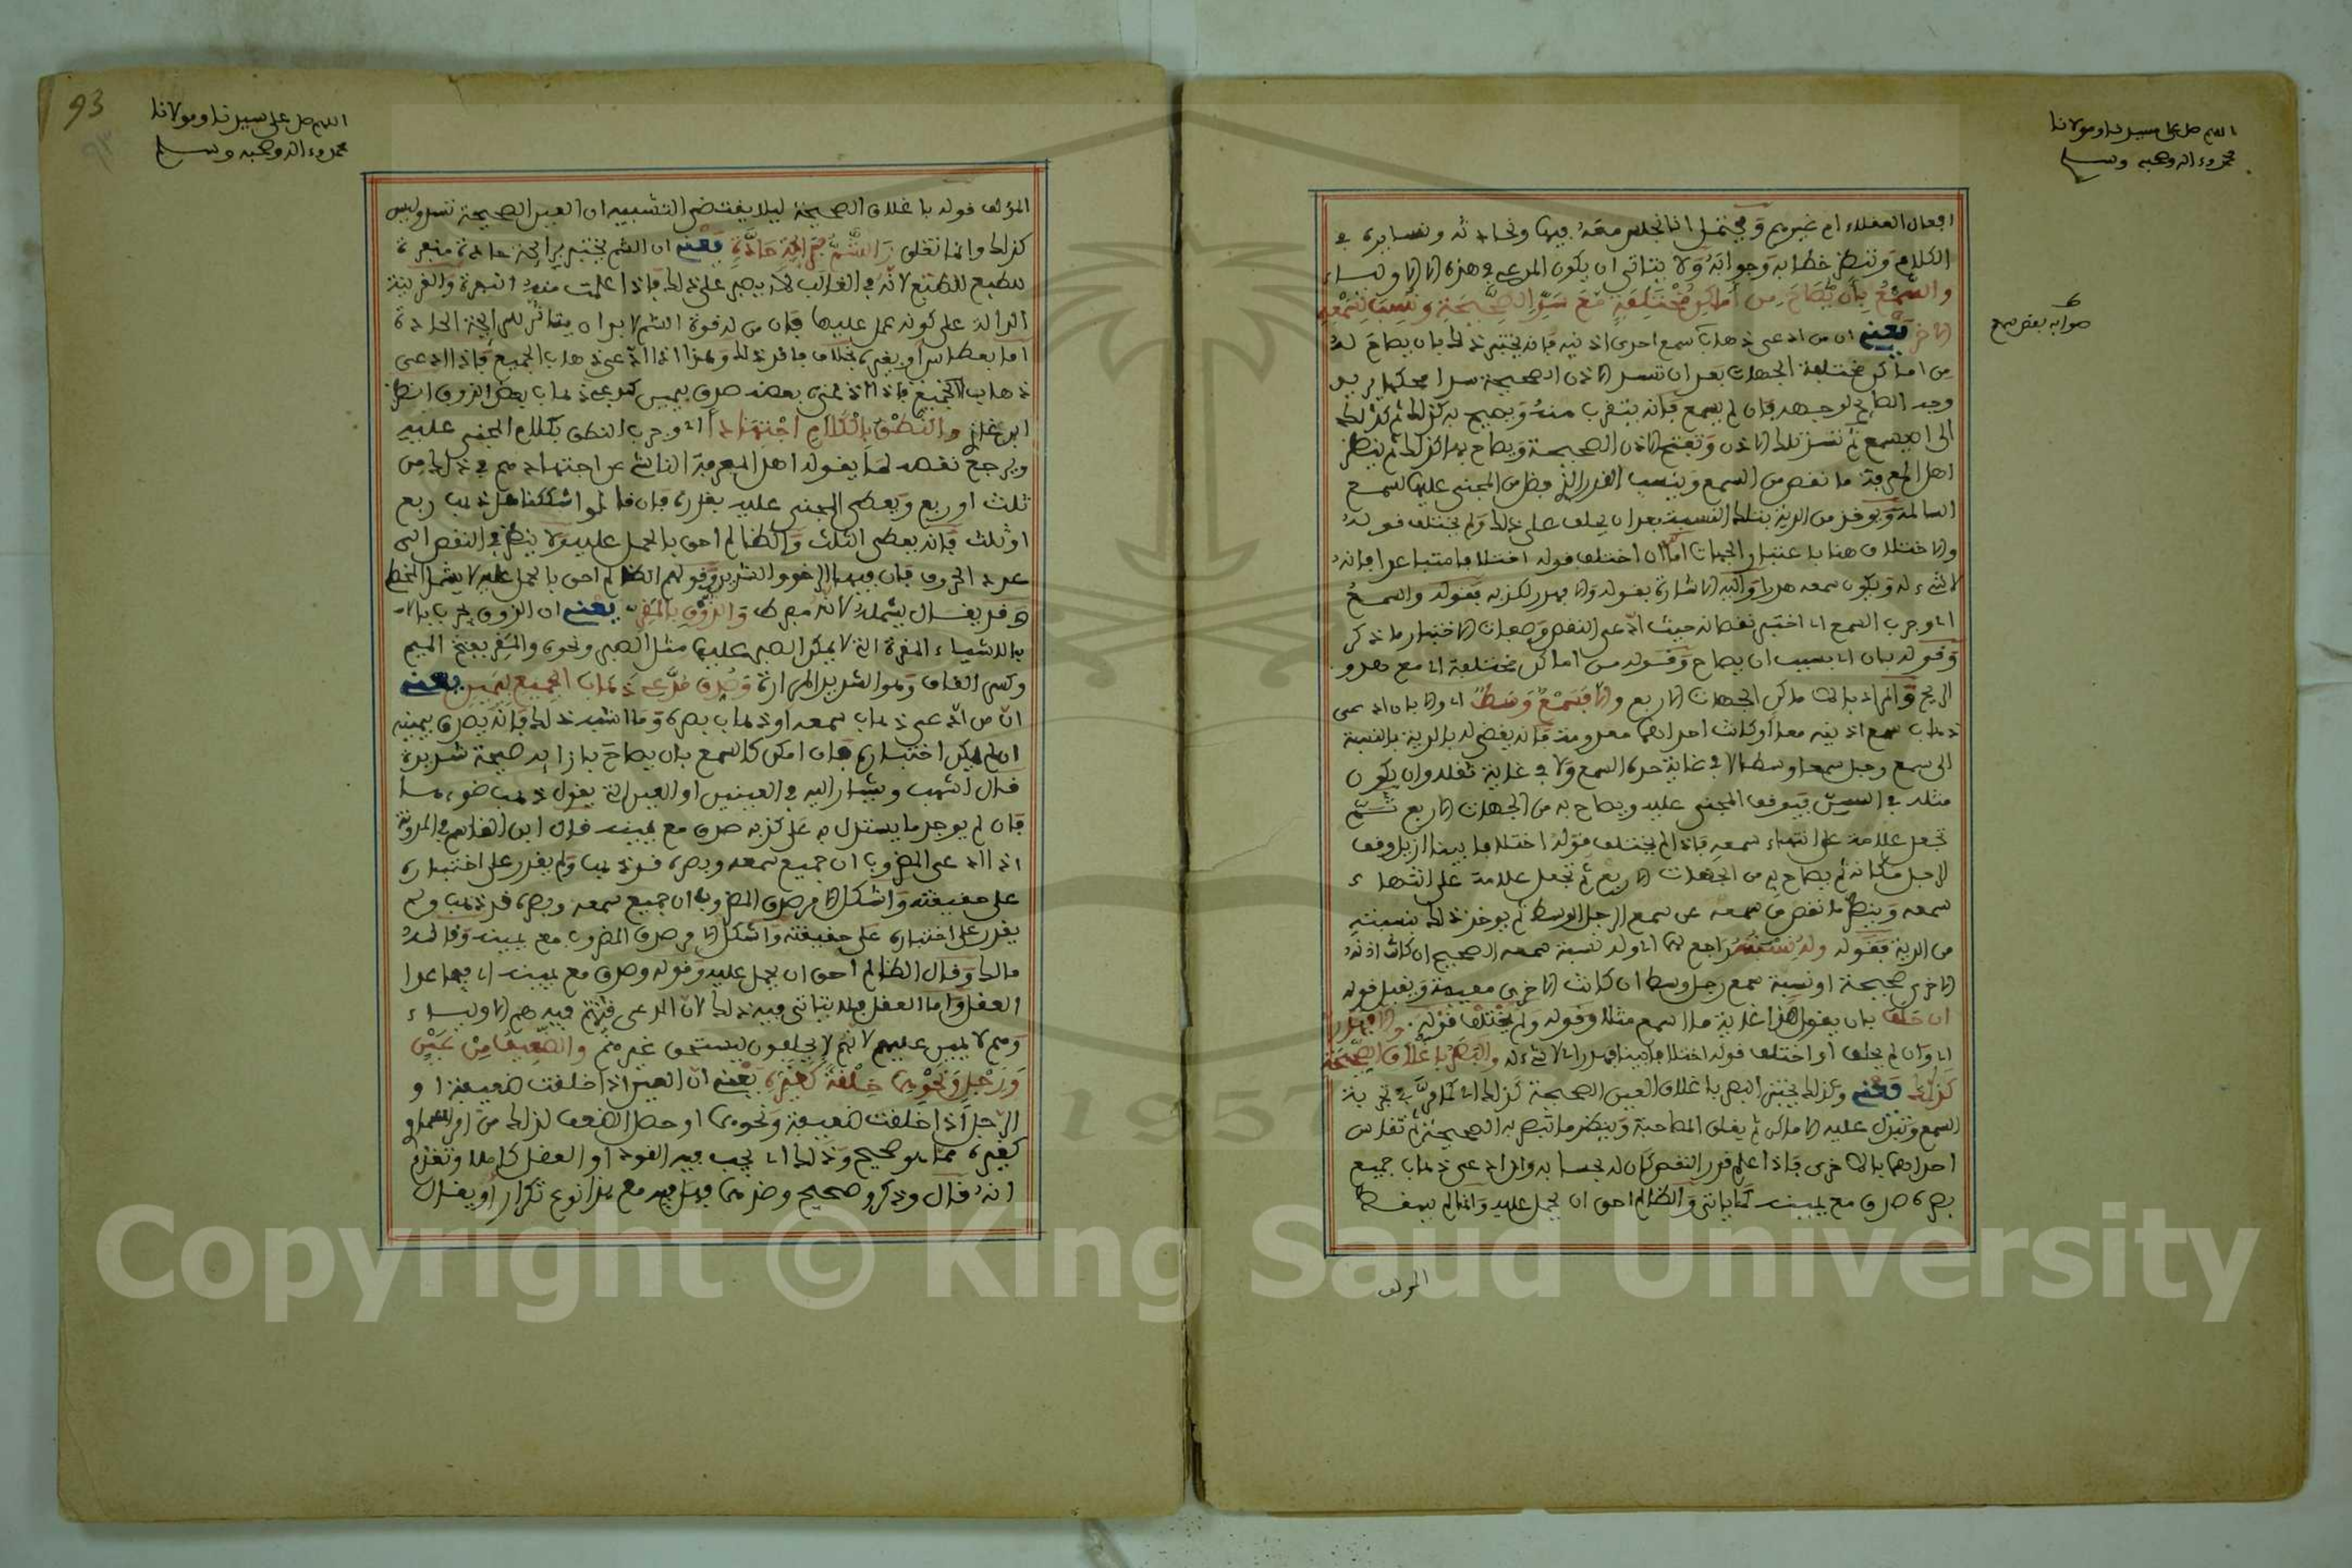 اللهم صل على سيدنا ومولانا
محمد وءاله وصحبه وسلم
افعال العقلاء ام غيرهم ويحتمل انا نجلس معه فيها ونحادثه ونسايره في
الكلام وننظر خطابه وجوابه ولا يتاتى ان يكون المدعي في هذه الا الاولياء
والسمع بان يصاح من أماكن مختلفة مع سد الصحيحة ونسب لسمعه
الاخر يعني ان من ادعى ذهاب سمع احدى اذنيه فانه يختبر ذلك بان يصاح له
من اماكن مختلفة الجهات بعد ان تسد الاذن الصحيحة سدا محكما
وجه الصائح لوجهه فان لم يسمع فانه يتقرب منه ويصيح به كذلك ثم كذلك
الى ان يسمع ثم تسد تلك الاذن وتفتح الاذن الصحيحة ويصاح به كذلك ثم ينظر
اهل المعرفة ما نقص من السمع وينسب القدر الذي نقص من المجني عليها لسمع
السالمة ويوخذ من الدية بتلك النسبة بعد ان يحلف على ذلك ولم يختلف قوله
والاختلاف هنا باعتبار الجهات اما ان اختلف قوله اختلافا متباعدا فانه
لا شيء له ويكون سمعه هدرا واليه الاشارة بقوله والا فهدر لكذبه فقوله والسمع
اي وجرب السمع اي اختبر نقصانه حيث ادعى النقص وصفات الاختبار ما ذكر
وقوله بان اي بسبب ان يصاح وقوله من اماكن مختلفة اي مع هدو
الريح والمراد بالاماكن الجهات الاربع والا فسمع وسط اي والا بان ادعى
ذهاب سمع اذنيه معا او كانت احداهما معدومة فانه يقضى له بالدية بالنسبة
الى سمع رجل سمعا وسطا لا في غاية حدة السمع ولا في غاية ثقله وان يكون
مثله في السن فيوقف المجني عليه ويصاح به من الجهات الاربع ثم
تجعل علامة على انتهاء سمعه فاذا لم يختلف قوله اختلافا بينا ازيل وقف
لرجل مكانه ثم يصاح به من الجهات الاربع ثم تجعل علامة على انتهاء
سمعه وينظر ما نقص من سمعه عن سمع الرجل الوسط ثم يوخذ ذلك بنسبته
من الدية فقوله وله نسبته راجع لهما اي وله نسبة سمعه الصحيح ان كانت اذنه
الاخرى صحيحة او نسبة سمع رجل وسط ان كانت الاخرى معيبة ويقبل قوله
ان حلف بان يقول هذا غاية ما اسمع مثلا وقوله ولم يختلف قوله والا فهدر
اي وان لم يحلف او اختلف قوله اختلافا بينا فهدر اي لا شيء له والبصر باغلاق الصحيحة
كذلك يعني وكذلك يختبر البصر باغلاق العين الصحيحة كذلك اي كما مر في تجربة
السمع وتبدل عليه الاماكن ثم يغلق المصابة وينظر ما تبصر به الصحيحة ثم تقاس
احداهما بالاخرى فاذا علم قدر النقص كان له بحسابه وان ادعى ذهاب جميع
بصره صدق مع يمينه كما ياتي والظالم احق ان يحمل عليه وانما لم يسقط
المؤلف
صوابه بعض سمع
93
٩٣
اللهم صل على سيدنا ومولانا
محمد وءاله وصحبه وسلم
المؤلف قوله باغلاق الصحيحة ليلا يقتضي التشبيه ان العين الصحيحة تسد وليس
كذلك وانما تغلق والشم برائحة حادة يعني ان الشم يختبر برائحة حادة منفرة
للطبع لانه في الغالب لا يصبر على ذلك فاذا علمت منه النفرة والقرينة
الدالة على كونه عمل عليها فان من له قوة الشم لابد ان يتاثر للرائحة الحادة
اما بعطاس او بغيره بخلاف فاقد ذلك وهذا اذا ادعى ذهاب الجميع فاذا ادعى
ذهاب الجميع فاذا ادعى بعضه صدق بيمين كمدعي ذهاب بعض الذوق انظر
ابن غازي والنطق بالكلام اجتهادا اي وجرب النطق بكلام المجني عليه
ويرجع نقصه لما يقوله اهل المعرفة الناشئ عن اجتهادهم في ذلك من
ثلث او ربع ويعطى المجني عليه بقدره فان قالوا شككنا هل ذهب ربع
او ثلث فانه يعطى الثلث والظالم احق بالحمل عليه ولا ينظر في النقص الى
عدد الحروف فان فيها الرخو والشديد وقولهم الظالم احق بالحمل عليه لا يشمل الخطا
وقد يقال يشمله لانه مفرط والذوق بالمقر يعني ان الذوق يجرب بالا
بالاشياء المقرة التي لا يمكن الصبر عليها مثل الصبر ونحوه والمقر بفتح الميم
وكسر القاف وهو الشديد المرارة وصدق مدعي ذهاب الجميع بيمين يعني
ان من ادعى ذهاب سمعه او ذهاب بصره وما اشبه ذلك فانه يصدق بيمينه
ان لم يمكن اختباره فان امكن كالسمع بان يصاح بازائه صيحة شديدة
قال اشهب ويشار اليه في العينين او العين التي يقول ذهب ضوءها
فان لم يوجد ما يستدل به على كذبه صدق مع يمينه قال ابن القاسم في المدونة
اذا ادعى المضروب ان جميع سمعه وبصره قد ذهب ولم يقدر على اختباره
على حقيقته واشكل الامر صدق المضروب ان جميع سمعه وبصره قد ذهب ولم
يقدر على اختباره على حقيقته واشكل الامر صدق المضروب مع يمينه وقاله
مالك وقال الظالم احق ان يحمل عليه وقوله وصدق مع يمينه اي فيما عدا
العقل واما العقل فلا يتاتى فيه ذلك لان المدعي فيه هم الاولياء
وهم لا يمين عليهم لانهم لا يحلفون ليستحق غيرهم والضعيف من عين
ورجل ونحوهما خلقة كغيره يعني ان العين اذا خلقت ضعيفة او
الرجل اذا خلقت ضعيفة ونحوهما او حصل الضعف لذلك من امر سماوي
كغيره مما هو صحيح وذلك اي يجب فيه القود او العقل كاملا وتقدم
انه قال وذكر وصحيح وضدهما فهل فيه مع هذا نوع تكرار او يقال